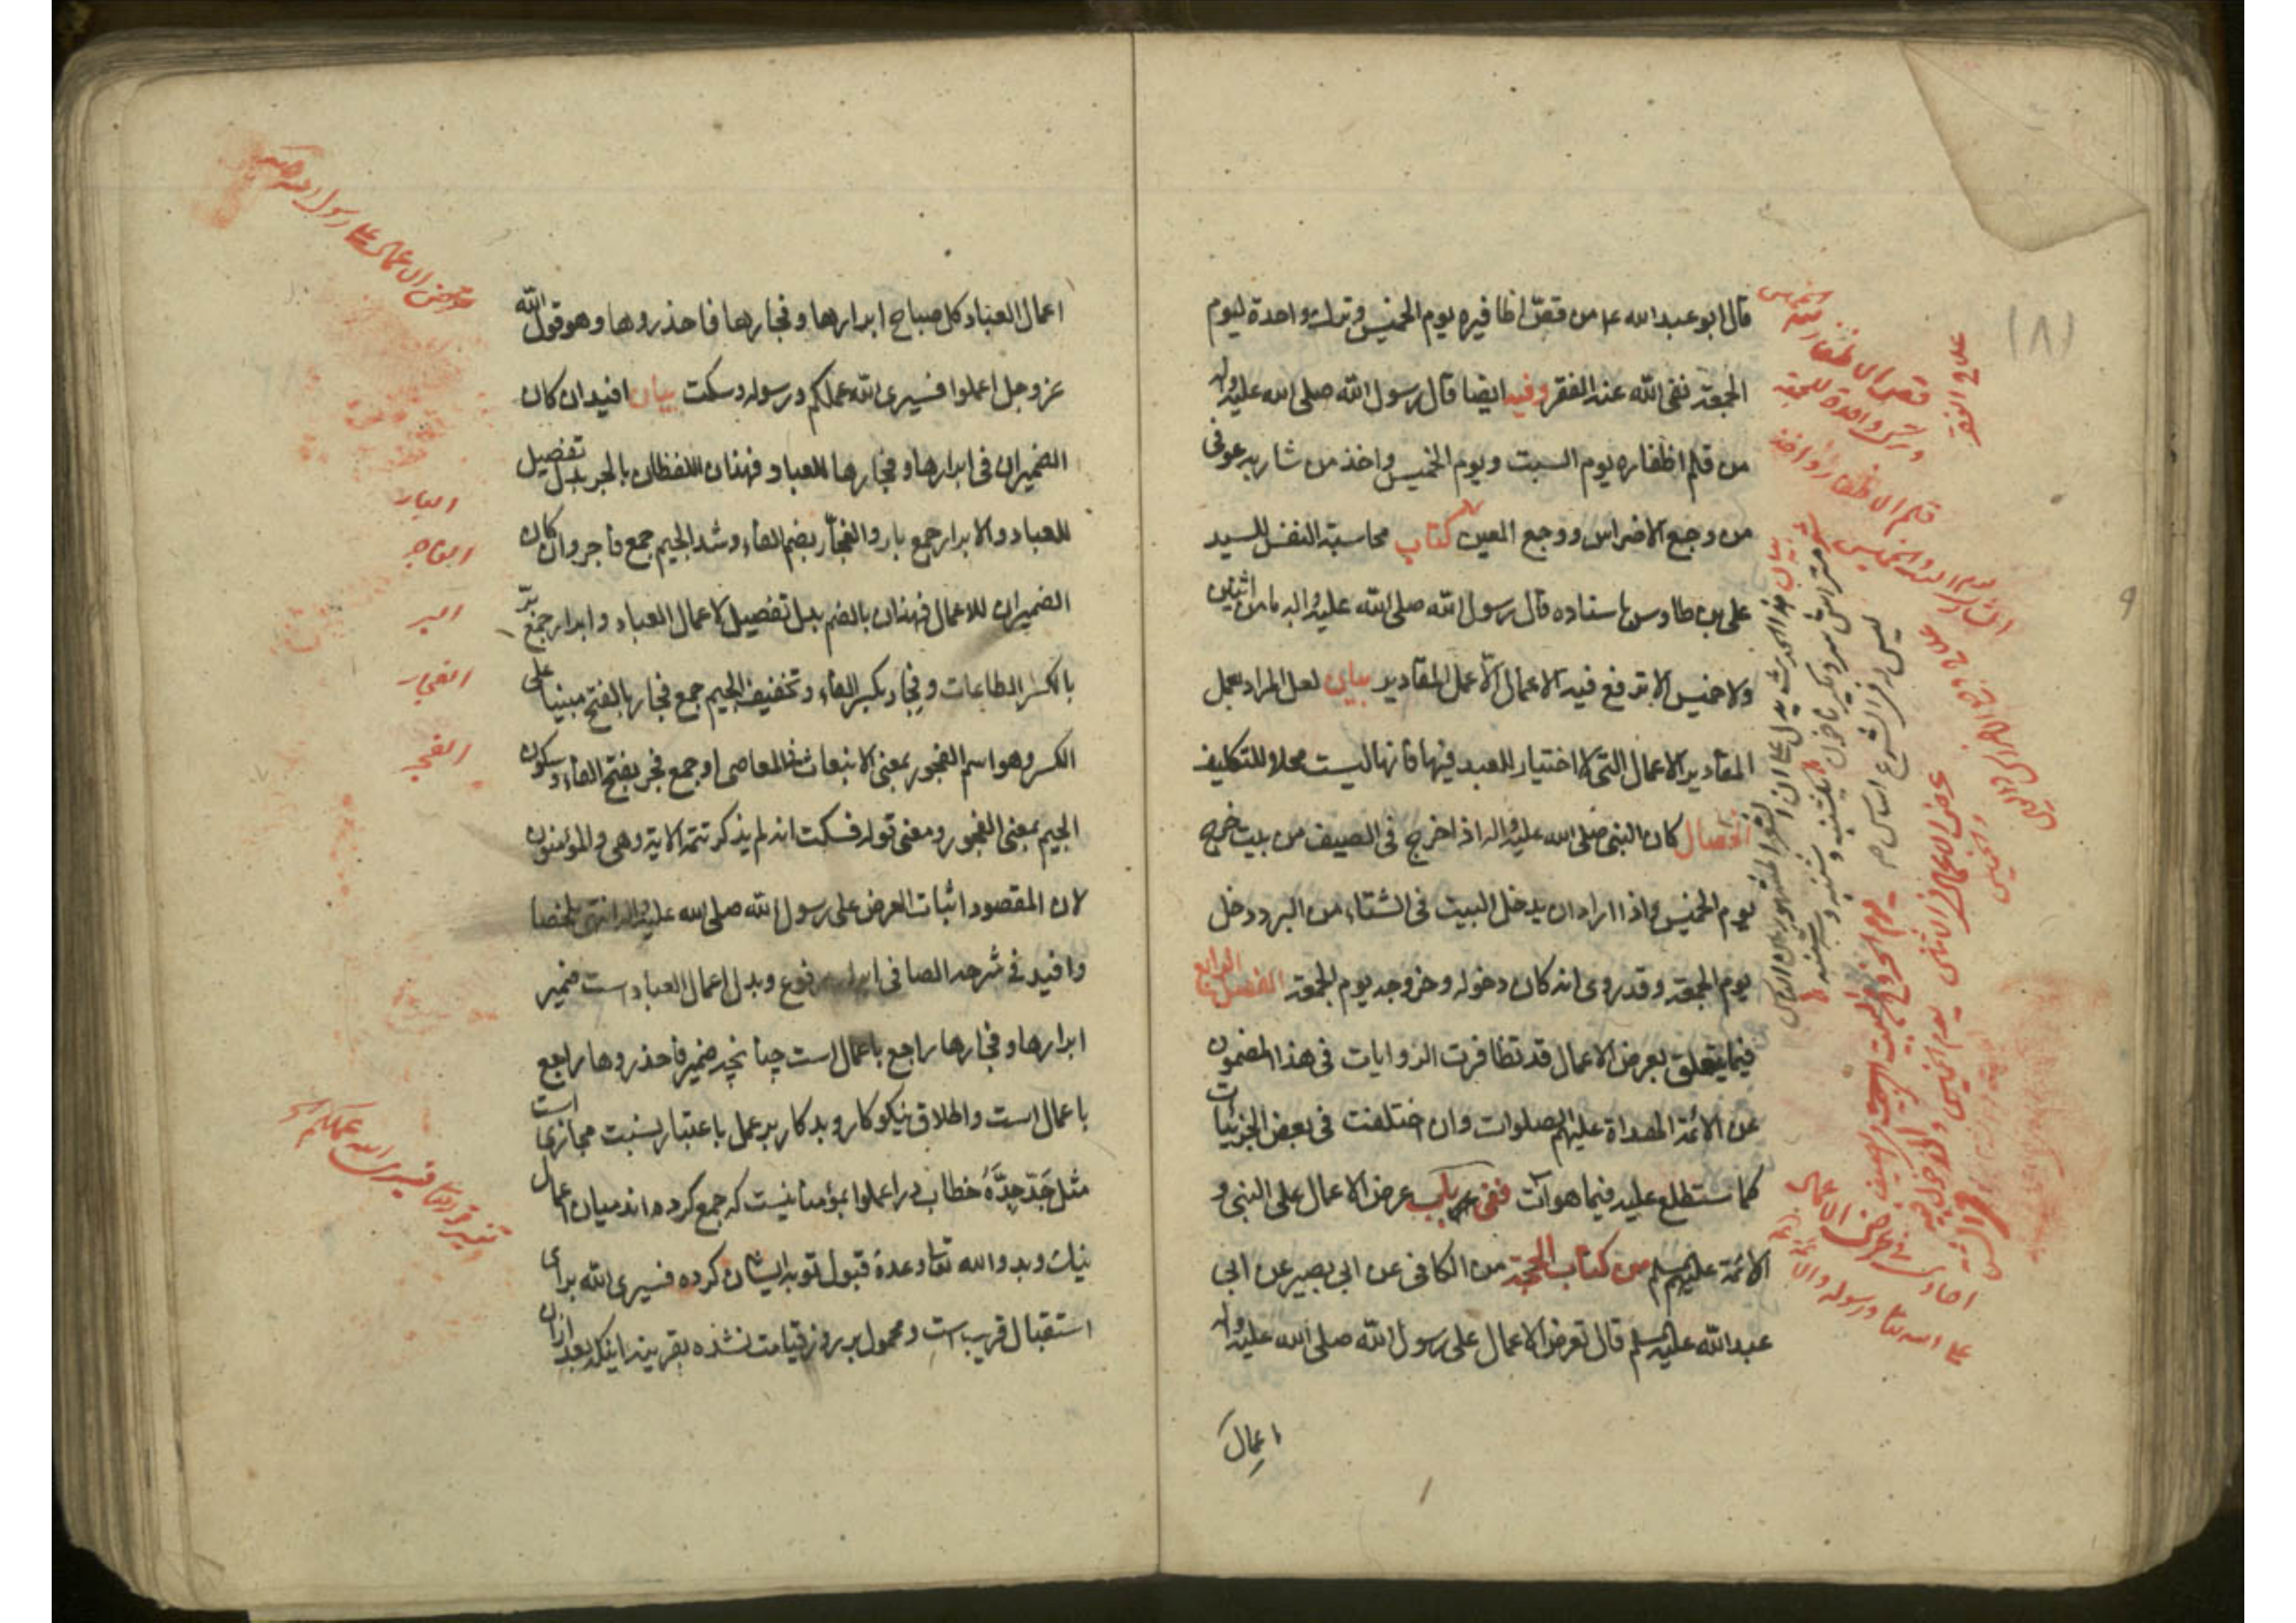 (٨)
قال ابو عبد الله ع من قصّ اظافيره يوم الخميس وترك واحدة ليوم
الجمعة نفى الله عنه الفقر وفيه ايضا قال رسول الله صلى الله عليه واله
من قلم اظفاره يوم السبت ويوم الخميس واخذ من شاربه عوفى
من وجع الاضراس ووجع العين كتاب محاسبة النفس للسيد
على بن طاوس باسناده قال رسول الله صلى الله عليه واله ما من اثنين
ولا خميس الا ترفع فيه الاعمال الّا عمل المقادير بيان لعل المراد بعمل
المقادير الاعمال التى لا اختيار للعبد فيها فانها ليست محلا للتكليف
الخصال كان النبى صلى الله عليه واله اذا خرج فى الصيف من بيت خرج
يوم الخميس واذا اراد ان يدخل البيت فى الشتاء من البرد دخل
يوم الجمعة وقد روى انه كان دخوله وخروجه يوم الجمعة الفصل الرابع
فيما يتعلق بعرض الاعمال قد تظافرت الروايات فى هذا المضمون
عن الائمة الهداة عليهم الصلوات وان اختلفت فى بعض الجزئيات
كما ستطلع عليه فيما هو آت ففى باب عرض الاعمال على النبى و
الائمة عليهم السلم من كتاب الحجة من الكافى عن ابى بصير عن ابى
عبد الله عليه السلم قال تعرض الاعمال على رسول الله صلى الله عليه واله
اعمال
قص الاظفار
وترك واحدة للجمعة
قلم الاظفار واخذ
يوم السبت والخميس
عرض الاعمال فى الاثنين
والخميس
يوم الخروج
احاديث فى عرض الاعمال
على الله تعا ورسوله
اعمال العباد كل صباح ابرارها وفجارها فاحذروها وهو قول الله
عز وجل اعملوا فسيرى الله عملكم ورسوله وسكت بيان افيد ان كان
الضميران فى ابرارها وفجارها للعباد فهذان اللفظان بالجر بدل تفصيل
للعباد والابرار جمع بار والفجّار بضم الفاء وشد الجيم جمع فاجر وان كان
الضميران للاعمال فهذان بالضم بدل تفصيل لاعمال العباد وابرار جمع برّ
بالكسر الطاعات وفجار بكسر الفاء وتخفيف الجيم جمع فجار بالفتح مبنيا على
الكسر وهو اسم الفجور بمعنى الانبعاث فى المعاصى او جمع فجر بفتح الفاء وسكون
الجيم بمعنى الفجور ومعنى قوله فسكت انه لم يذكر تتمة الاية وهى والمؤمنون
لان المقصود اثبات العرض على رسول الله صلى الله عليه واله انتهى ملخصا
وافيد فى شرحه الصافى ابرار مرفوع وبدل اعمال العباد است ضمير
ابرارها وفجارها راجع باعمال است چنانچه ضمير فاحذروها راجع
باعمال است واطلاق نيكوكار وبدكار بر عمل باعتبار نسبت مجازى است
مثل جَدّ جِدُّهُ خطاب در اعملوا بمؤمنانيست كه جمع كرده اند ميان اعمال
نيك وبد والله تعا وعدهٔ قبول توبه ايشان كرده فسيرى الله براى
استقبال قريب است ومحمول بر روز قيامت نشده بقرينه اينكه بعد ازان
عرض الاعمال على رسول الله
البار
الفاجر
البر
الفجار
الفجر
تفسير قوله تعا فسيرى الله عملكم